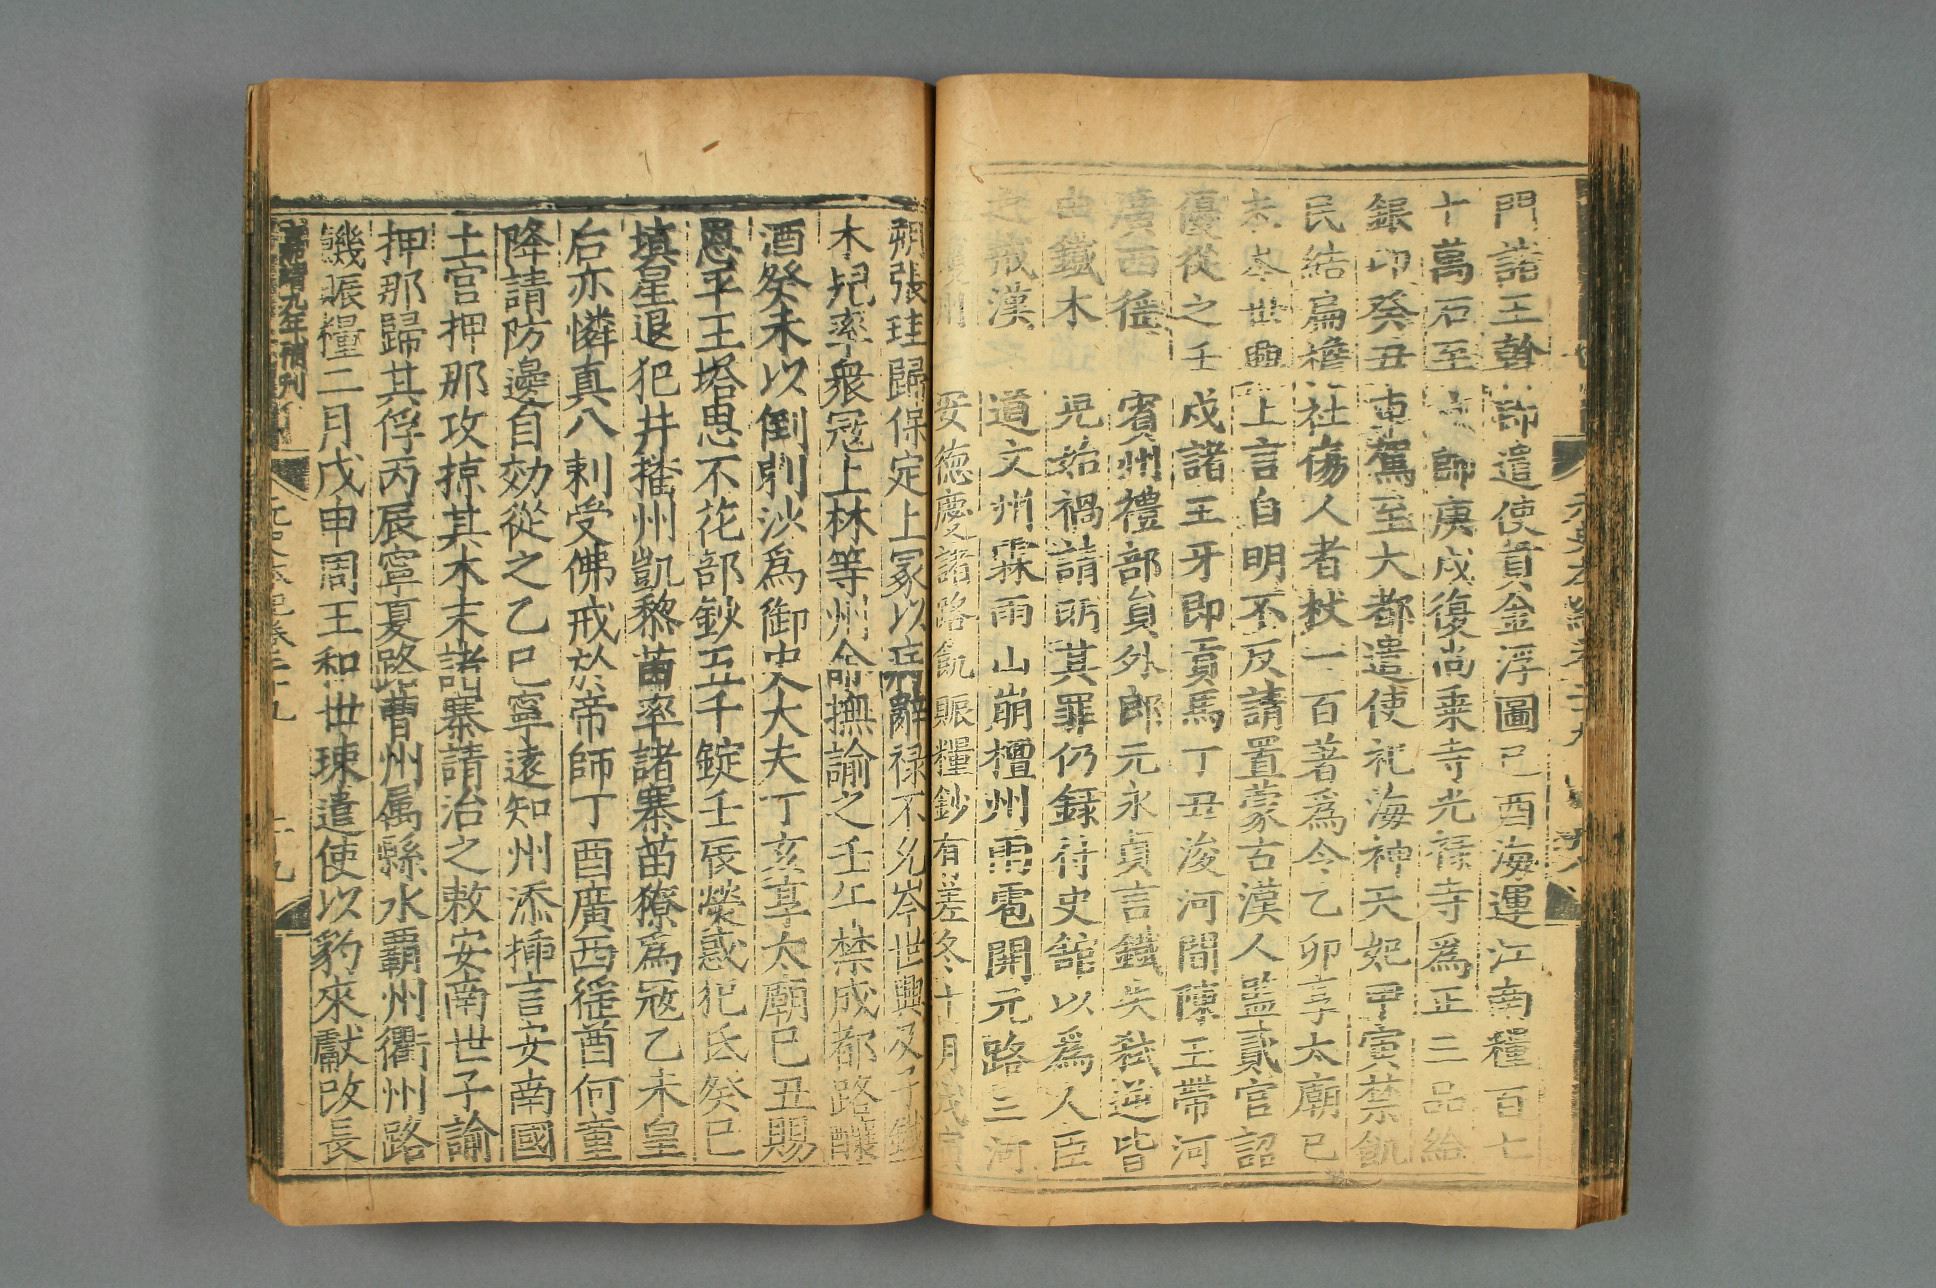 門諸王斡即遣使賫金浮圖已酉海運江南糧百七
十萬石至 師庚戌復尚乗寺光禄寺爲正三品給
銀印癸丑車駕至大都遣使祀海神天妃甲寅禁飢
民結扁檐社傷人者杖一百著爲令乙卯享太廟已
未岑世興上言自明不反請置蒙古漢人監貳官詔
優從之壬戌諸王牙即貢馬丁丑浚河間陳王帶河
廣西徭 賓州禮部員外郎元永貞言鐵失弒逆皆
由鐵木 兒始禍請明其罪仍録付史舘以爲人臣
之戒漢 道文州霖雨山崩檀州雨雹開元路三河
州 安德慶諸路飢賑糧鈔有差冬十月戊寅
朔張珪歸保定上冢以病辭禄不允岑世興及子鐵
木兒率衆寇上林等州命撫諭之壬午禁成都路釀
酒癸未以倒剌沙爲御史大夫丁亥享太廟已丑賜
恩平王塔思不花部鈔五千錠壬辰熒惑犯氐癸巳
填星退犯井播州凱黎苗率諸寨苗獠爲寇乙未皇
后亦憐真八剌受佛戒於帝師丁酉廣西徭酋何童
降請防邊自効從之乙巳寧遠知州添揷言安南國
土官押那攻掠其木末諸寨請治之敕安南世子諭
押那歸其俘丙辰寧夏路曹州属縣水霸州衢州路
饑賑糧二月戊申周王和世㻋遣使以豹來獻改長
嘉靖九年補刊
元史本紀卷二十九
元史本紀卷二十九